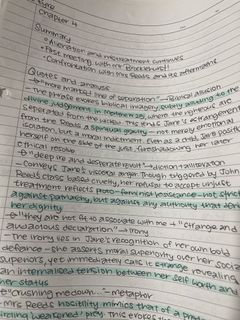 Chapter 4
Summary
- Alienation and mistreatment continues
- First meeting with Mr Brocklehurst
- Confrontation with Mrs Reed and its aftermaths
Quotes and analysis
"a more marked line of separation" → Biblical allusion
- The phrase evokes biblical imagery, subtly alluding to the
divine judgement in Matthew 25, where the righteous are
seperated from the wicked
from the Reeds a spiritual quality - not merely emotional
isolation, but a moral independence. Even as a child, Jane positions
herself on the side of the just, foreshadowing her later
ethical resolve
"deep ire and desperate revolt" → diction + alliteration
- Conveys Jane's visceral anger. Though triggered by John
Reed's class-based cruelty, her refusal to accept unjust
treatment reflects proto-feminist
against patriarchy, but against any authority that
her dignity
"they are not fit to associate with me" → "strange and
audacious declaration" → irony
- The irony lies in Jane's recognition of her own bold
defiance - she asserts moral superiority over her social
superiors, yet immediately calls it strange, revealing
an internalised tension between her self worth and
her status
"crushing me down..." → metaphor
- Mrs Reed's hostility mimics that of a
This evokes